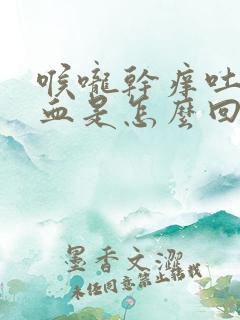 喉嚨幹痒吐
血是怎麼回
墨香文澀
未経同意禁止转载